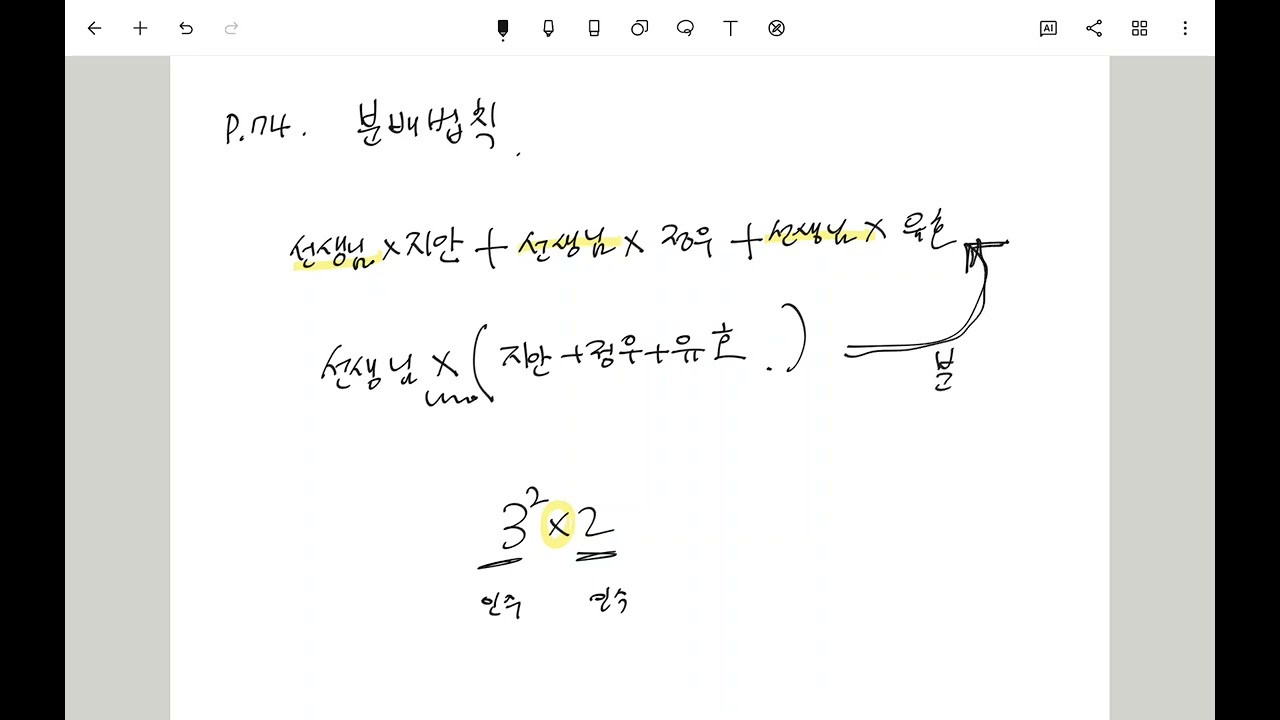 P.74. 분배법칙
선생님 × 지안 + 선생님 × 정우 + 선생님 × 유호
선생님 × (지안 + 정우 + 유호.)
분
3² × 2
인수 인수